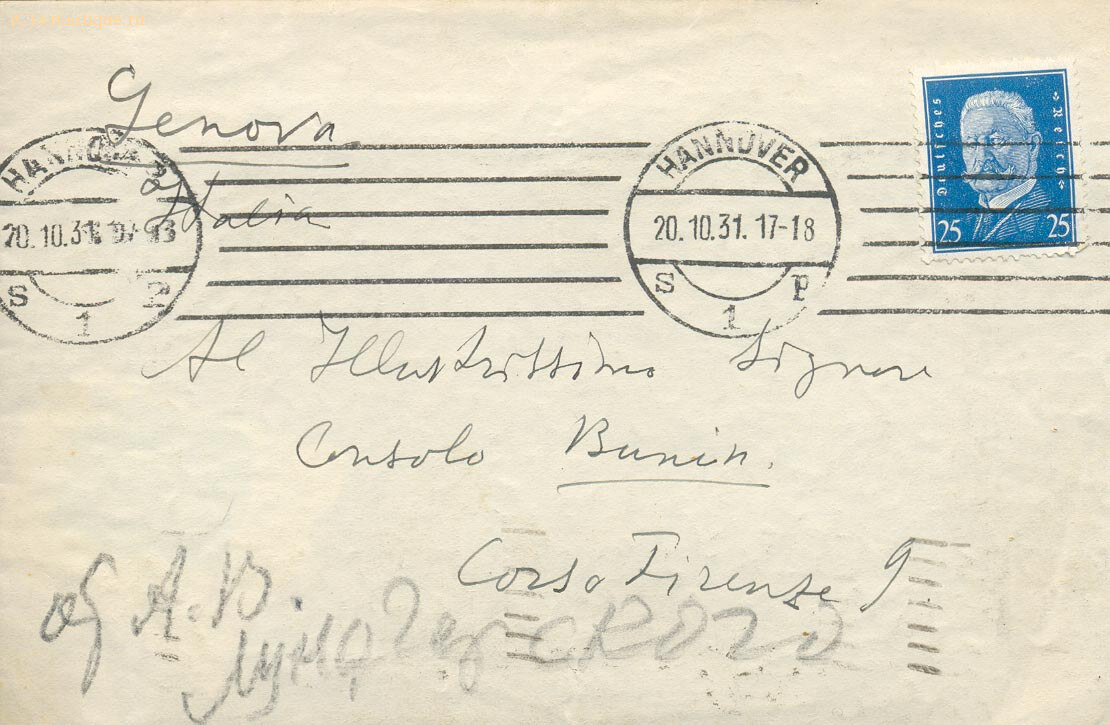 Genova
Italia
HANNOVER
20.10.31. 17-18
S P
1
HANNOVER
20.10.31. 17-18
S P
1
Deutsches Reich
25 25
Al Illustrissimo Signore
Consolo Bunin.
Corso Firenze 9.
А.В.
Луначарского